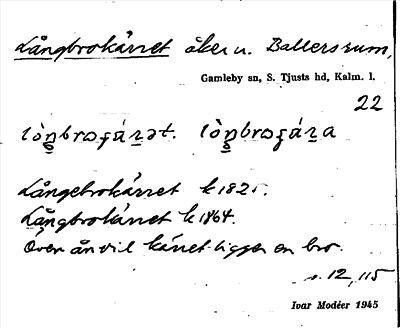 Långbrokärret åker u. Ballersrum,
Gamleby sn, S. Tjusts hd, Kalm. l.
22
Långebrokärret k 1825.
Långbrokärret k 1864.
Över ån vil kärret ligger en bro.
s. 12, 115
Ivar Modéer 1945